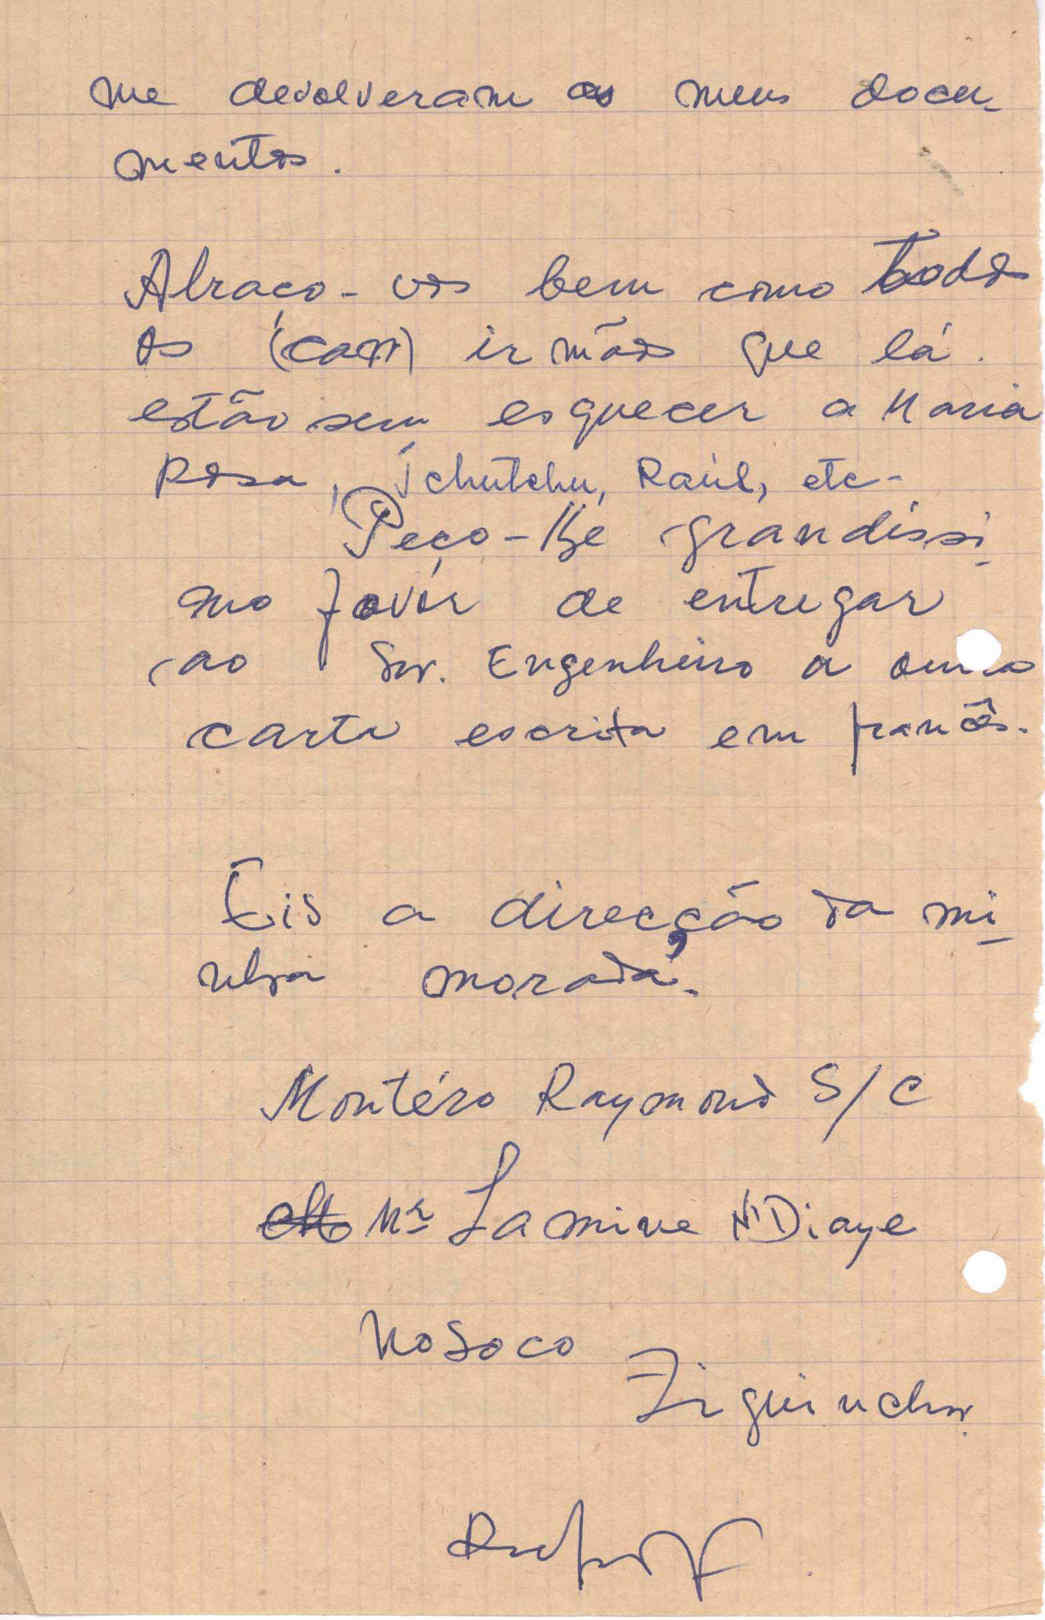 me devolveram os meus docu-
mentos.
Abraço-vos bem como todos
os (cam) irmãos que lá
estão sem esquecer a Maria
Rosa, Tchutchu, Raúl, etc-
Peço-lhe grandissi-
mo favor de entregar
ao Snr. Engenheiro a outra
carta escrita em francês.
Eis a direcção da mi-
nha morada.
Montéro Raymond S/C
Mr Lamine N'Diaye
Nosoco
Ziguinchor